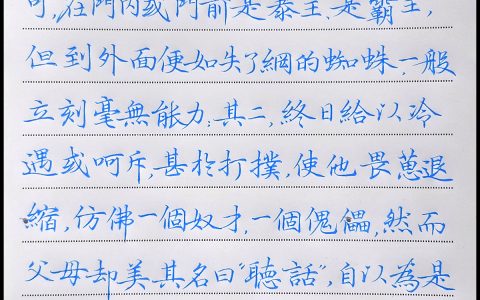 可,在門內或門前是暴主,是霸主,
但到外面便如失了網的蜘蛛,一般
立刻毫無能力;其二,終日給以冷
遇或呵斥,甚於打撲,使他畏葸退
縮,仿佛一個奴才,一個傀儡,然而
父母却美其名曰“聽話”,自以為是